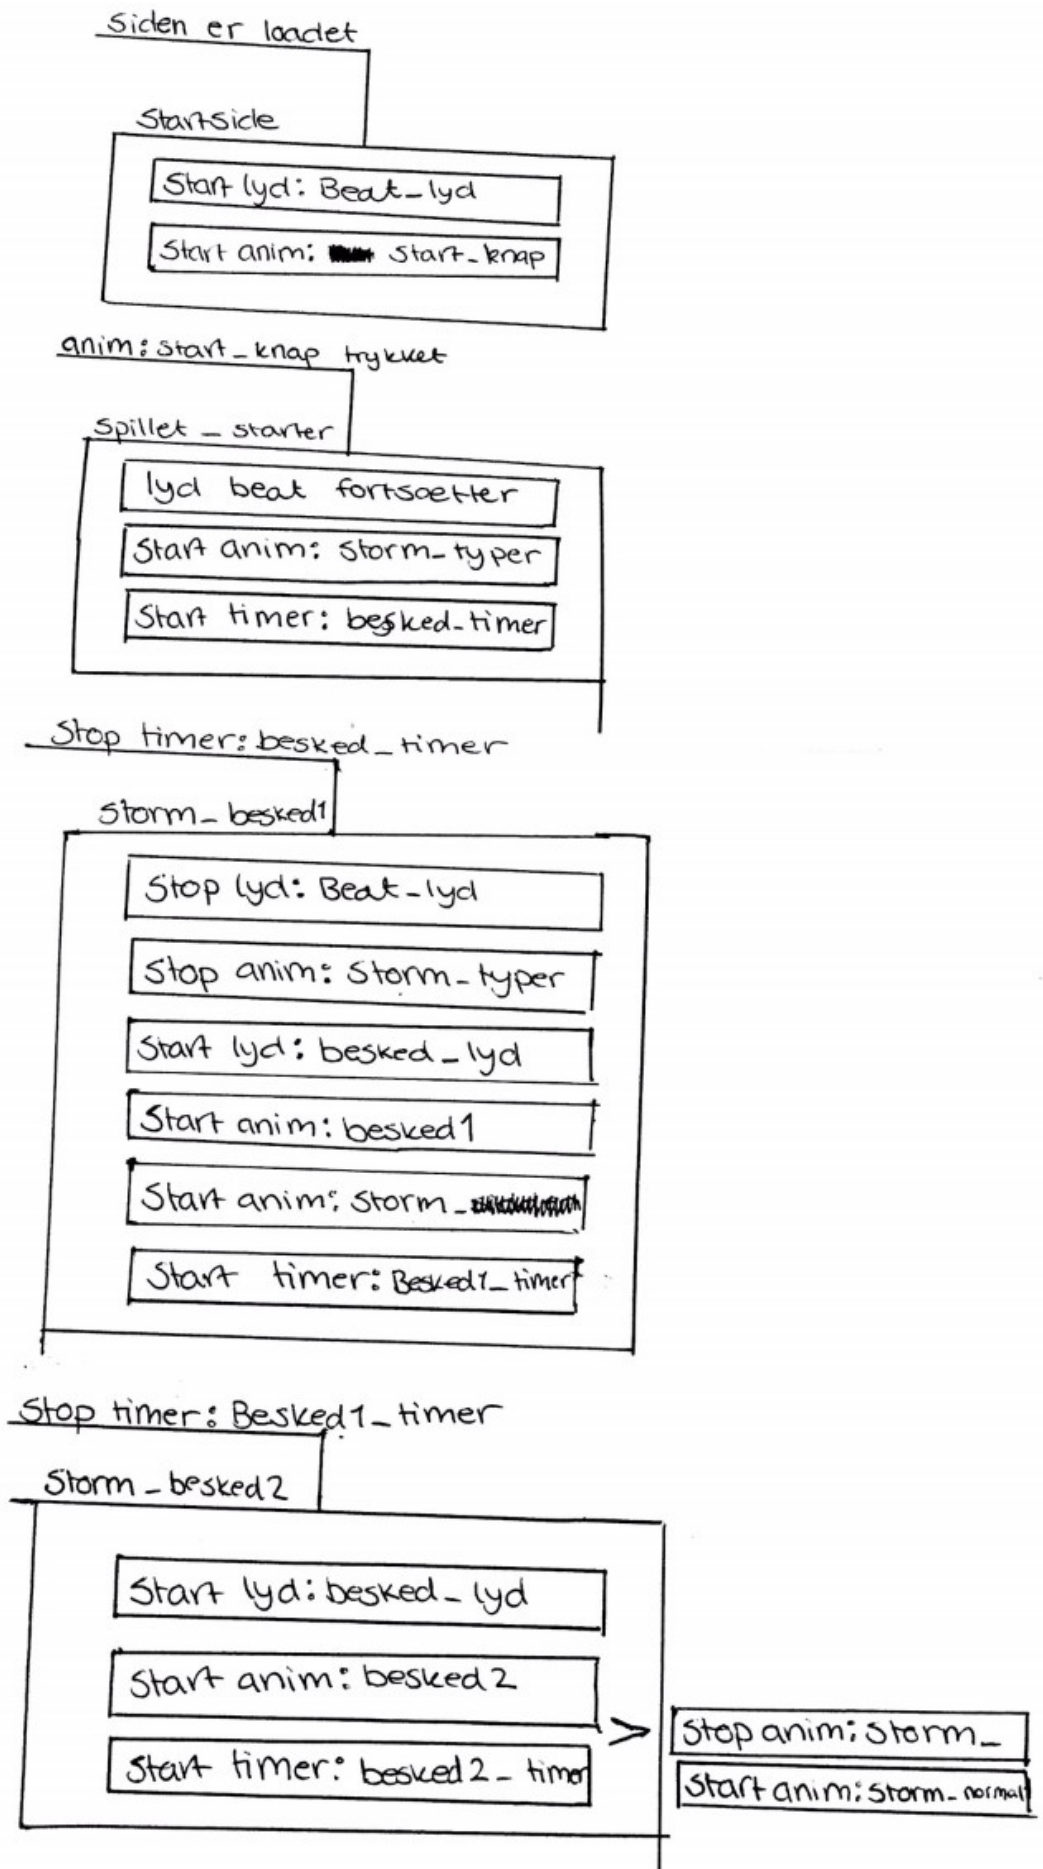 Siden er loadet
Startside
Start lyd: Beat_lyd
Start anim: start_knap
anim: start_knap trykket
Spillet_starter
lyd beat fortsætter
Start anim: Storm_typer
Start timer: besked_timer
Stop timer: besked_timer
Storm_besked1
Stop lyd: Beat_lyd
Stop anim: Storm_typer
Start lyd: besked_lyd
Start anim: besked1
Start anim: Storm_
Start timer: Besked1_timer
Stop timer: Besked1_timer
Storm_besked2
Start lyd: besked_lyd
Start anim: besked2
Start timer: besked2_timer
>
Stop anim: Storm_
Start anim: Storm_normal